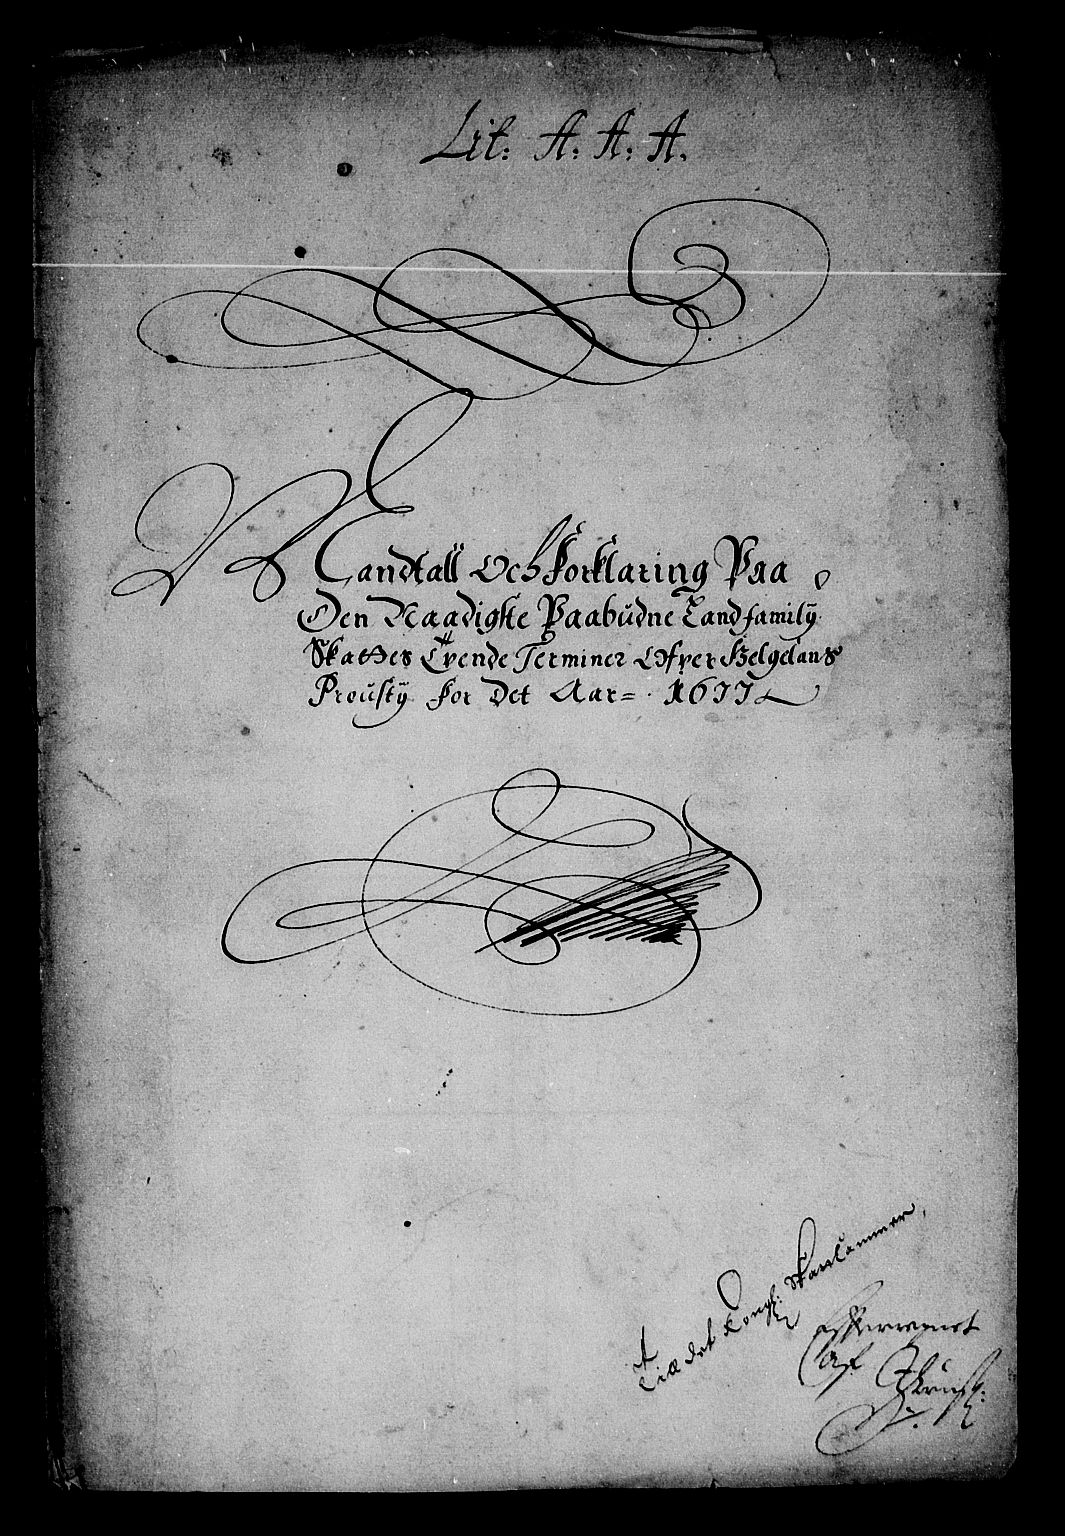 Lit: A: A: A.
Mandtall Och Forklaring Paa
Den Naadigste Paabudne Landfamilÿ
Skattes Tvende Terminer Ofver Helgelans
Proustÿ for Det Aar= 1677
Til det Kongl: Skatcammer,
efterregnet
af